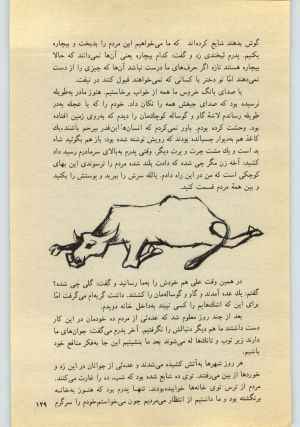 گوش بدهند شایع کرده‌اند که ما می‌خواهیم این مردم را بدبخت و بیچاره
بکنیم. پدرم لبخندی زد و گفت: کدام بیچاره یعنی آن‌ها نمی‌دانند که حالا
بیچاره هستند تازه اگر حرف‌های ما درست نباشد آن‌ها که چیزی را از دست
نمی‌دهند اما تو دختر با کسانی که نمی‌خواهند قبول کنند در نیفت.
با صدای بانگ خروس ما همه از خواب برخاستیم. هنوز مادر به‌طویله
نرسیده بود که صدای جیغش همه را تکان داد. خودم را که با عجله به‌در
طویله رساندم لاشهٔ گاو و گوساله کوچکمان را دیدم که به‌روی زمین افتاده
بود. وحشت کرده بودم. باور نمی‌کردم که انسان‌ها این‌قدر بیرحم باشند. یك
کاغذ هم به‌دیوار چسبانده بودند که رویش نوشته شده بود: باز هم بگوئید شاه
بد است و یك مشت چرت و پرت دیگر. وقتی پدرم به‌بالای سرمادرم رسید داد
کشید: آخه زن مگر چی شده که دادت بلند شده مردم را ترسوندی این بهای
کوچکی است که من در این راه دادم. یالله سرش را ببرید و پوستش را بکنید
و بین همهٔ مردم قسمت کنید.
در همین وقت علی هم خودش را به‌ما رسانید و گفت: گلی چی شده؟
گفتم: یك عده آمدند و گاو و گوساله‌مان را کشتند. داشت گریه‌ام می‌گرفت امّا
برای این که اشك‌هایم را کسی نبیند به‌داخل خانه دویدم.
بعد از چند روز معلوم شد که عده‌ئی از مردم ده خودمان در این کار
دست داشتند ما هم دیگر دنبالش را نگرفتیم. آخر پدرم می‌گفت: جوان‌های ما
دارند زیر توپ و تانك‌ها له می‌شوند بعد ما بنشینیم این جا به‌فکر منافع خود
باشیم.
هر روز شهرها به‌آتش کشیده می‌شدند و عده‌ئی از جوانان در این زد و
خوردها از بین می‌رفتند. توی ده شایع شده بود که شب، ده را غارت می‌کنند.
مردم از ترس توی خانه‌ها خوابیده‌بودند. تنها پدرم بود که هنوز به‌خانه
برنگشته بود و ما داشتیم از انتظار می‌مردیم چون می‌خواستم‌خودم را سرگرم
۱۲۹